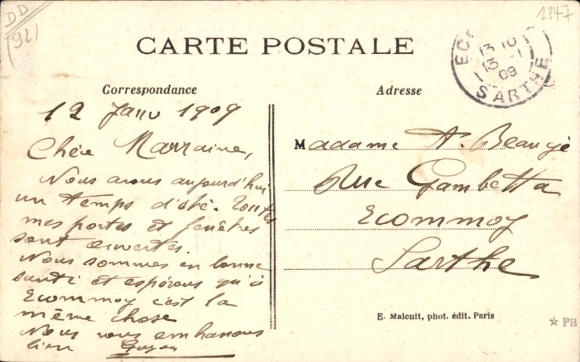 DD
(92)
1347
CARTE POSTALE
Correspondance
Adresse
13 10
13 -1
09
SARTHE
12 Janv 1909
Chère Marraine,
Nous avons aujourd'hui
un temps d'été. Toutes
mes portes et fenêtres
sont ouvertes.
Nous sommes en bonne
santé et espérons qu'à
Ecommoy c'est la
même chose
Nous vous embrassons
bien
Madame A. Beaugé
Rue Gambetta
Ecommoy
Sarthe
E. Malcuit, phot. édit. Paris
PB